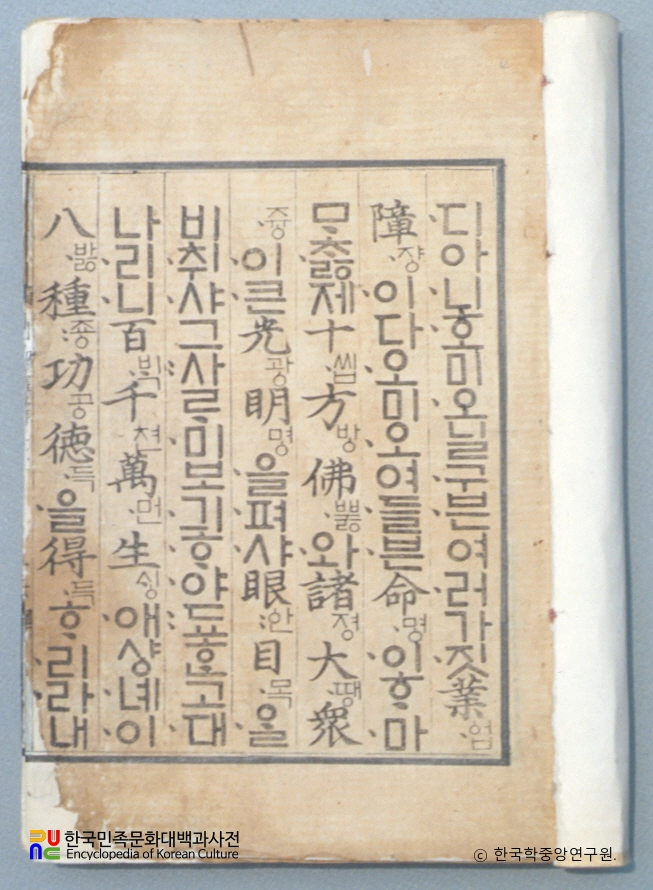 디아니호미오닐구븐여러가짓業업
障쟝이다오미오여들븐命명이ᄒᆞ마
ᄆᆞᄎᆞᇙ제十씹方방佛뿌ᇙ와諸졍大땡衆
즁이큰光광明명을펴샤眼안目목ᄋᆞᆯ
비취샤그사ᄅᆞ미보긔ᄒᆞ야됴ᄒᆞᆫ고대
나리니百ᄇᆡᆨ千쳔萬먼生ᄉᆡᆼ애샹녜이
八바ᇙ種죵功공德득을得득ᄒᆞ리라내
한국민족문화대백과사전
Encyclopedia of Korean Culture
© 한국학중앙연구원.